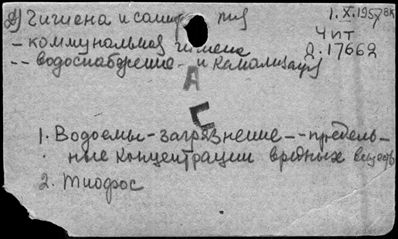 Гигиена и сани
1.X.1957
Чит
- коммунальная гигиена
Д.17662
-- водоснабжение и канализац
А
С
1. Водоемы - загрязнение -- предель-
ные концентрации вредных веществ
2. Тиофос